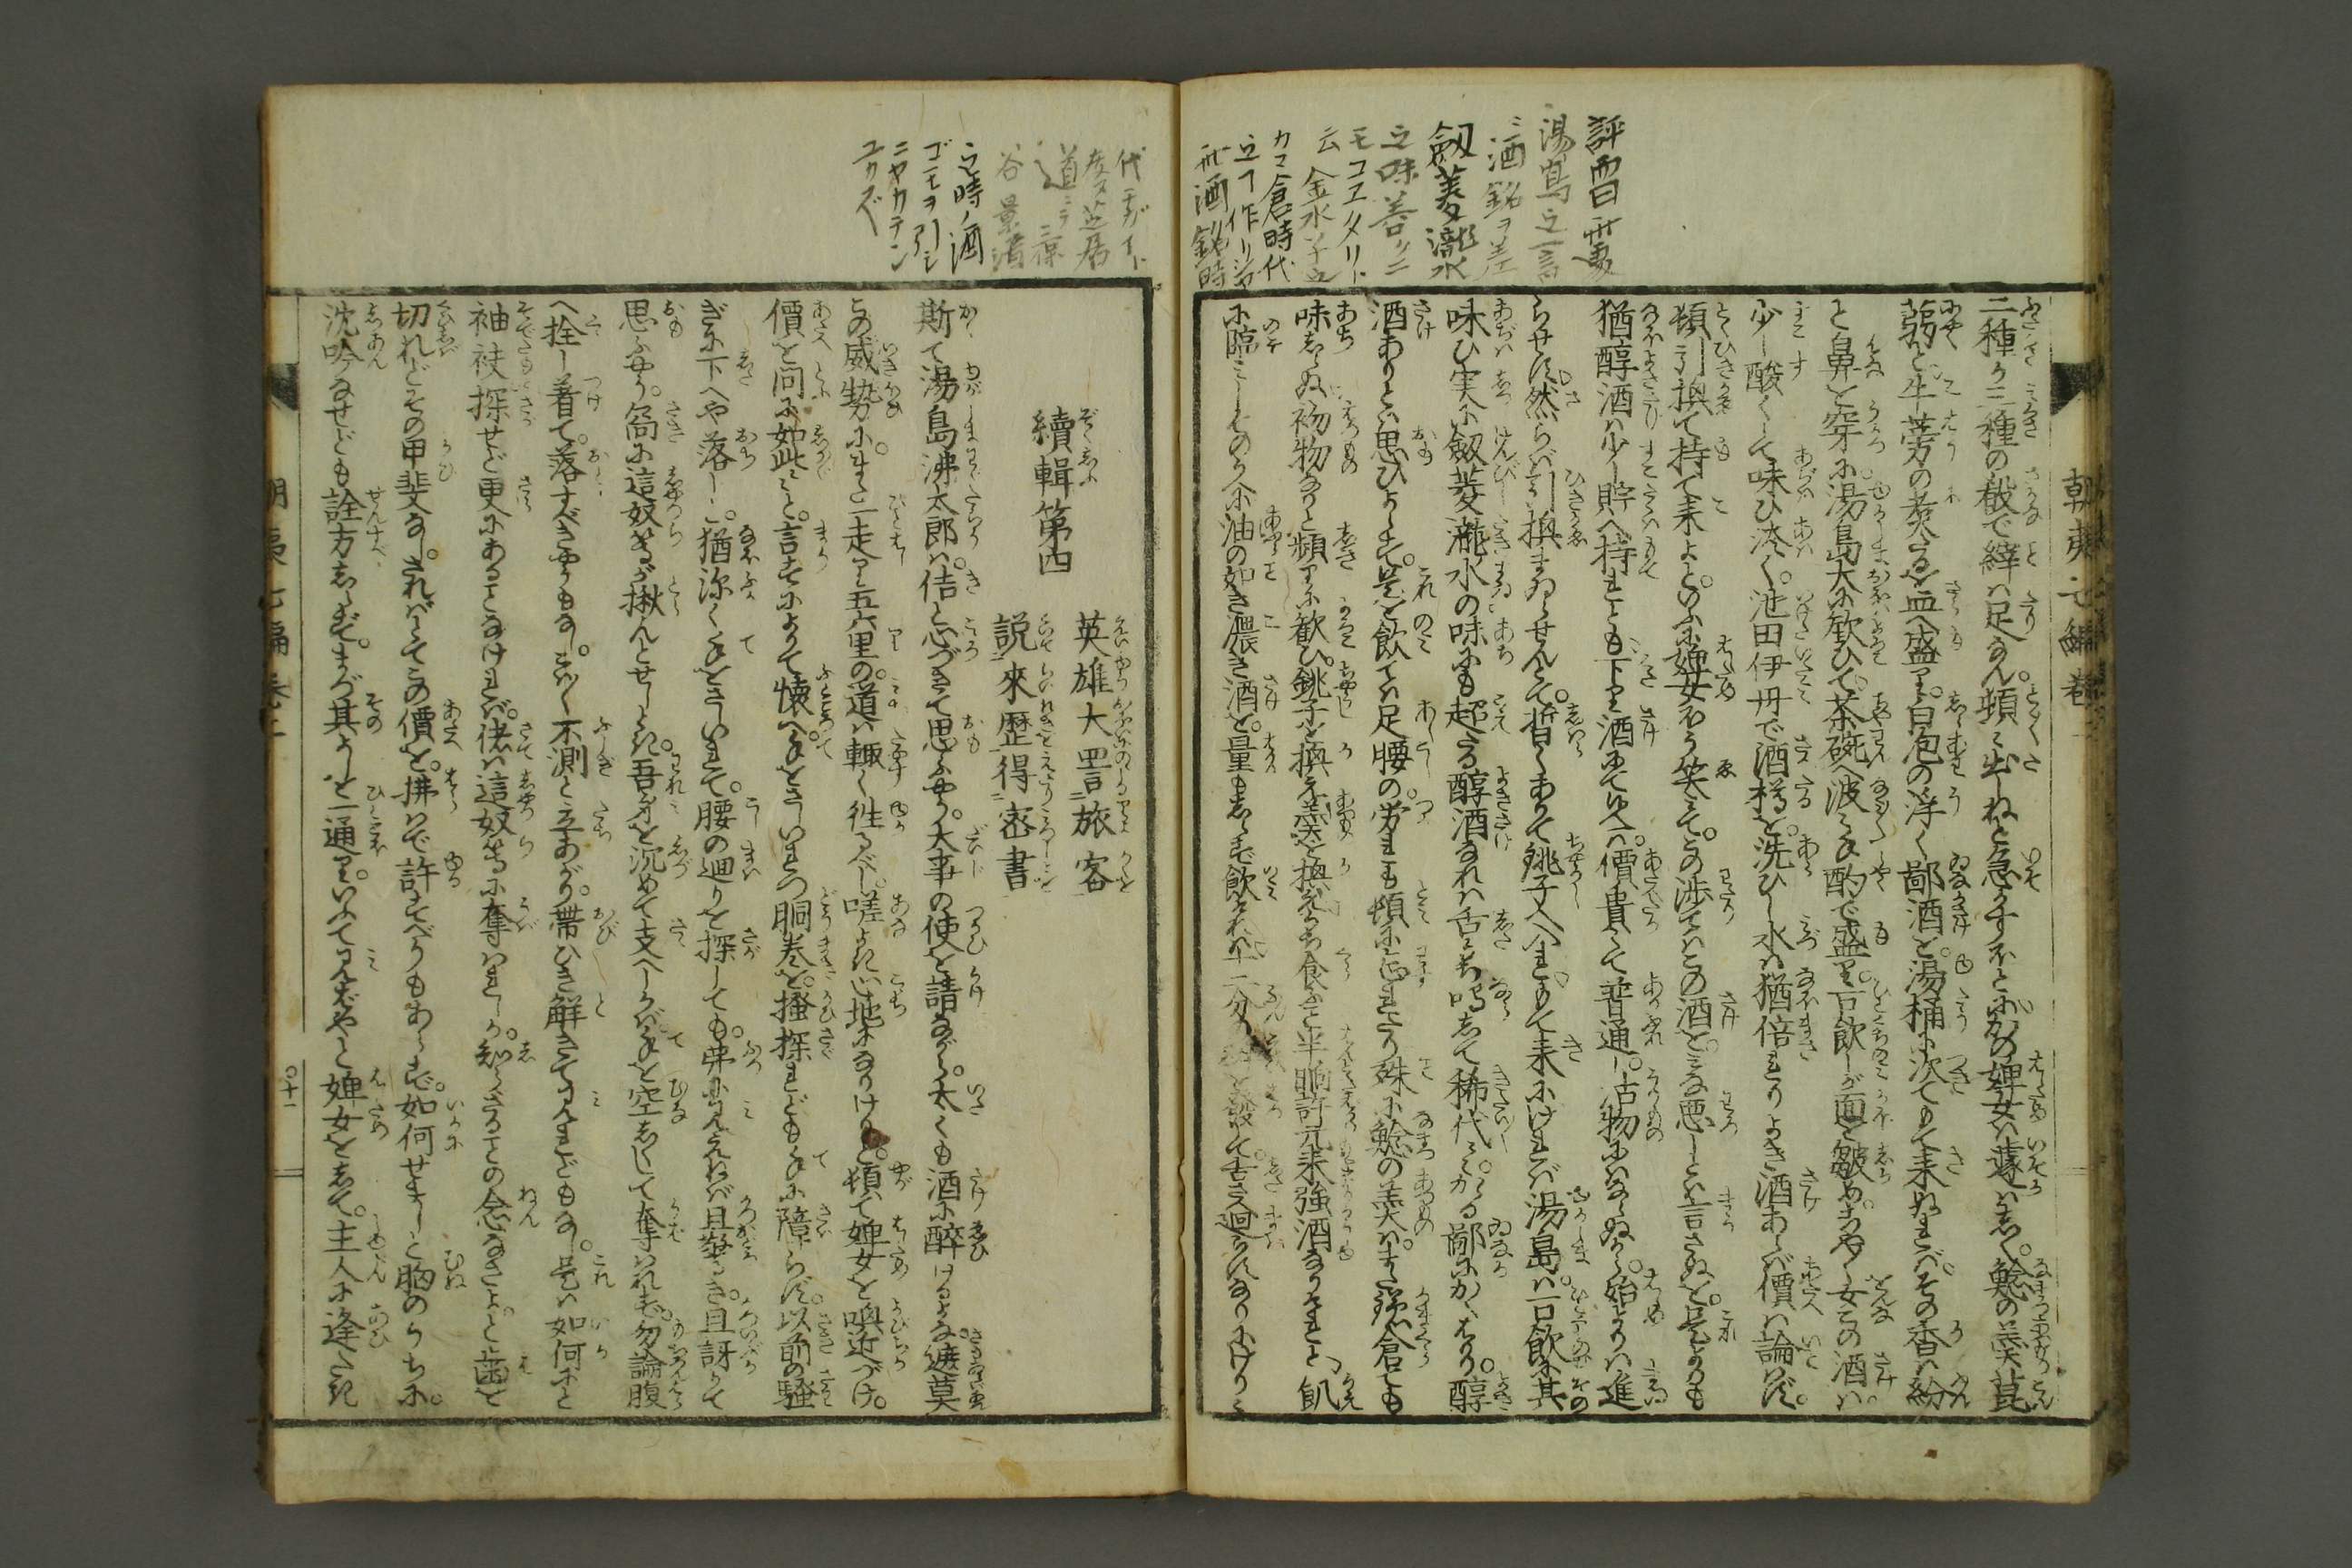 評曰此處
湯嶌之言
ニ酒銘ヲ差
劔菱瀧水
之味善ク
モコエタリト
云金水子
カマ倉時代
立テ作リシ
此酒銘時
二種か三種の殽で絳ハ足なん。頓〻出しねと急がすほどに婢女ハ遽ハしく。鯰の羹菎
蒻と牛蒡の煮たるを皿へ盛り。白泡の浮く鄙酒を。湯桶に次てもて来ぬれバ。その香ハ紛
と鼻を穿に。湯島大に歓ひて。茶碗へ波〻手酌で盛り。一口飲しが面を皺め。女この酒ハ。
少し酸くて味ひ淡く。池田伊丹で酒樽を。洗ひし水ハ猶倍れりよき酒あらバ價ハ論はず。
頓引換て持て来よと。いふに婢女ほう笑て。この渉りハこの酒を。みな悪しとハ言さぬを。是よりも
猶醇酒ハ少し貯へ持れども下り酒ゆゑ。價貴くて普通。沽物にハならぬから。始よりハ進
らせず。然らバ引換まゐらせんとて。暫くありて銚子へ入れもて来にけれバ湯島ハ一口飲に其
味ひ実に劔菱瀧水の味にも超たる醇酒なれハ舌うち鳴して稀代〻かゝる鄙にかゝはり。醇
酒ありとハ思ひよらず。是を飲てハ足腰の。労れも頓に忘れたり殊に鯰の羹ハ。まだ鎌倉でも
味しらぬ初物なりと頻りに歓ひ。銚子を換え羹を換え食ふと半晌許元来強酒なりけれど飢
に臨ミしその〻余油の如き濃き酒を。量もしらず飲けれバ十二分の酔を發して舌さへ廻らずなりにけり
朝夷七編巻
代ナガラ
時ノ酒
ゴモヲ引シ
ニヤカテン
ユカズ
續輯第四
英雄大詈旅客
説來歴得密書
斯て湯島沸太郎ハ。佶と心づきて思ふやう。大事の使を請ながら。太くも酒に酔けるよな。遮莫
この威勢に。まだ一走り五六里の。道ハ輙く徃るべし。嗟よき心地になりけりと。頓て婢女を喚近づけ。
價を問に如此〻と。言まゝによりて懐へ。手をさしいれつ胴巻を。掻探れども手に障らず。以前の騒
ぎに下へや落し。猶深く手をさしいれて。腰の廻りを探しても。弗に見えねバ且驚き。且訝りて
思ふやう。曩に這奴等が揪んとせしとき。吾身を沈めて支へしかバ手を空しくして奪はれず。勿論腹
へ拴し着て。落すべきやうもなし。こハ不測と立あがり。帯ひき解きて見れどもなし。是ハ如何にと
袖袂探せど更にあることなけれバ。偖ハ這奴等に奪はれしか。知らざることの念なさよと歯を
切れどその甲斐なし。されバとてこの價を。拂はで許すべうもあらず。如何せましと胸のうちに。
沈吟なせども詮方しらず。まづ其よしを一通り。いふて見ばやと婢女をして。主人に逢たき
朝夷七編巻二
○十一